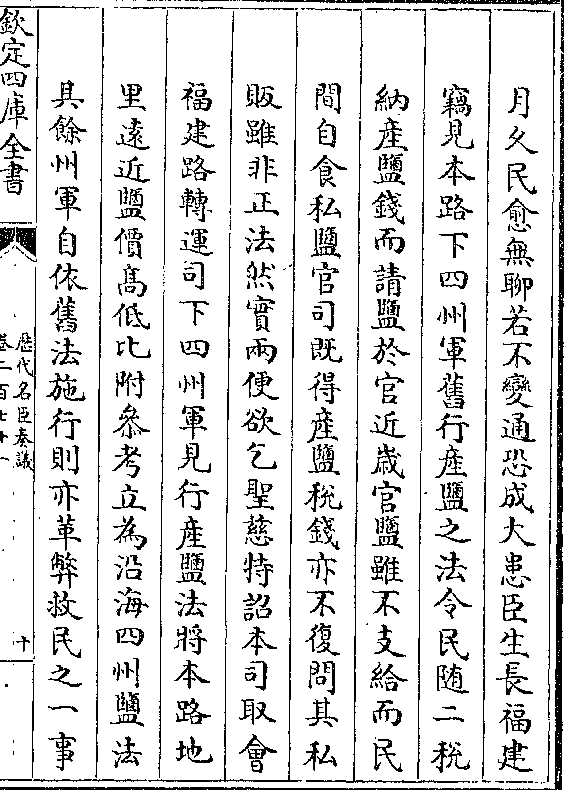 月久民愈無聊若不變通恐成大患臣生長福建
竊見本路下四州軍舊行産鹽之法令民随二税
納産鹽錢而請鹽於官近歳官鹽雖不支給而民
間自食私鹽官司既得産鹽税錢亦不復問其私
販雖非正法然實兩便欲乞聖慈特詔本司取㑹
福建路轉運司下四州軍見行産鹽法將本路地
里逺近鹽價髙低比附叅考立為沿海四州鹽法
具餘州軍自依舊法施行則亦革弊救民之一事
欽定四庫全書
歴代名臣奏議
卷二百七十一
十